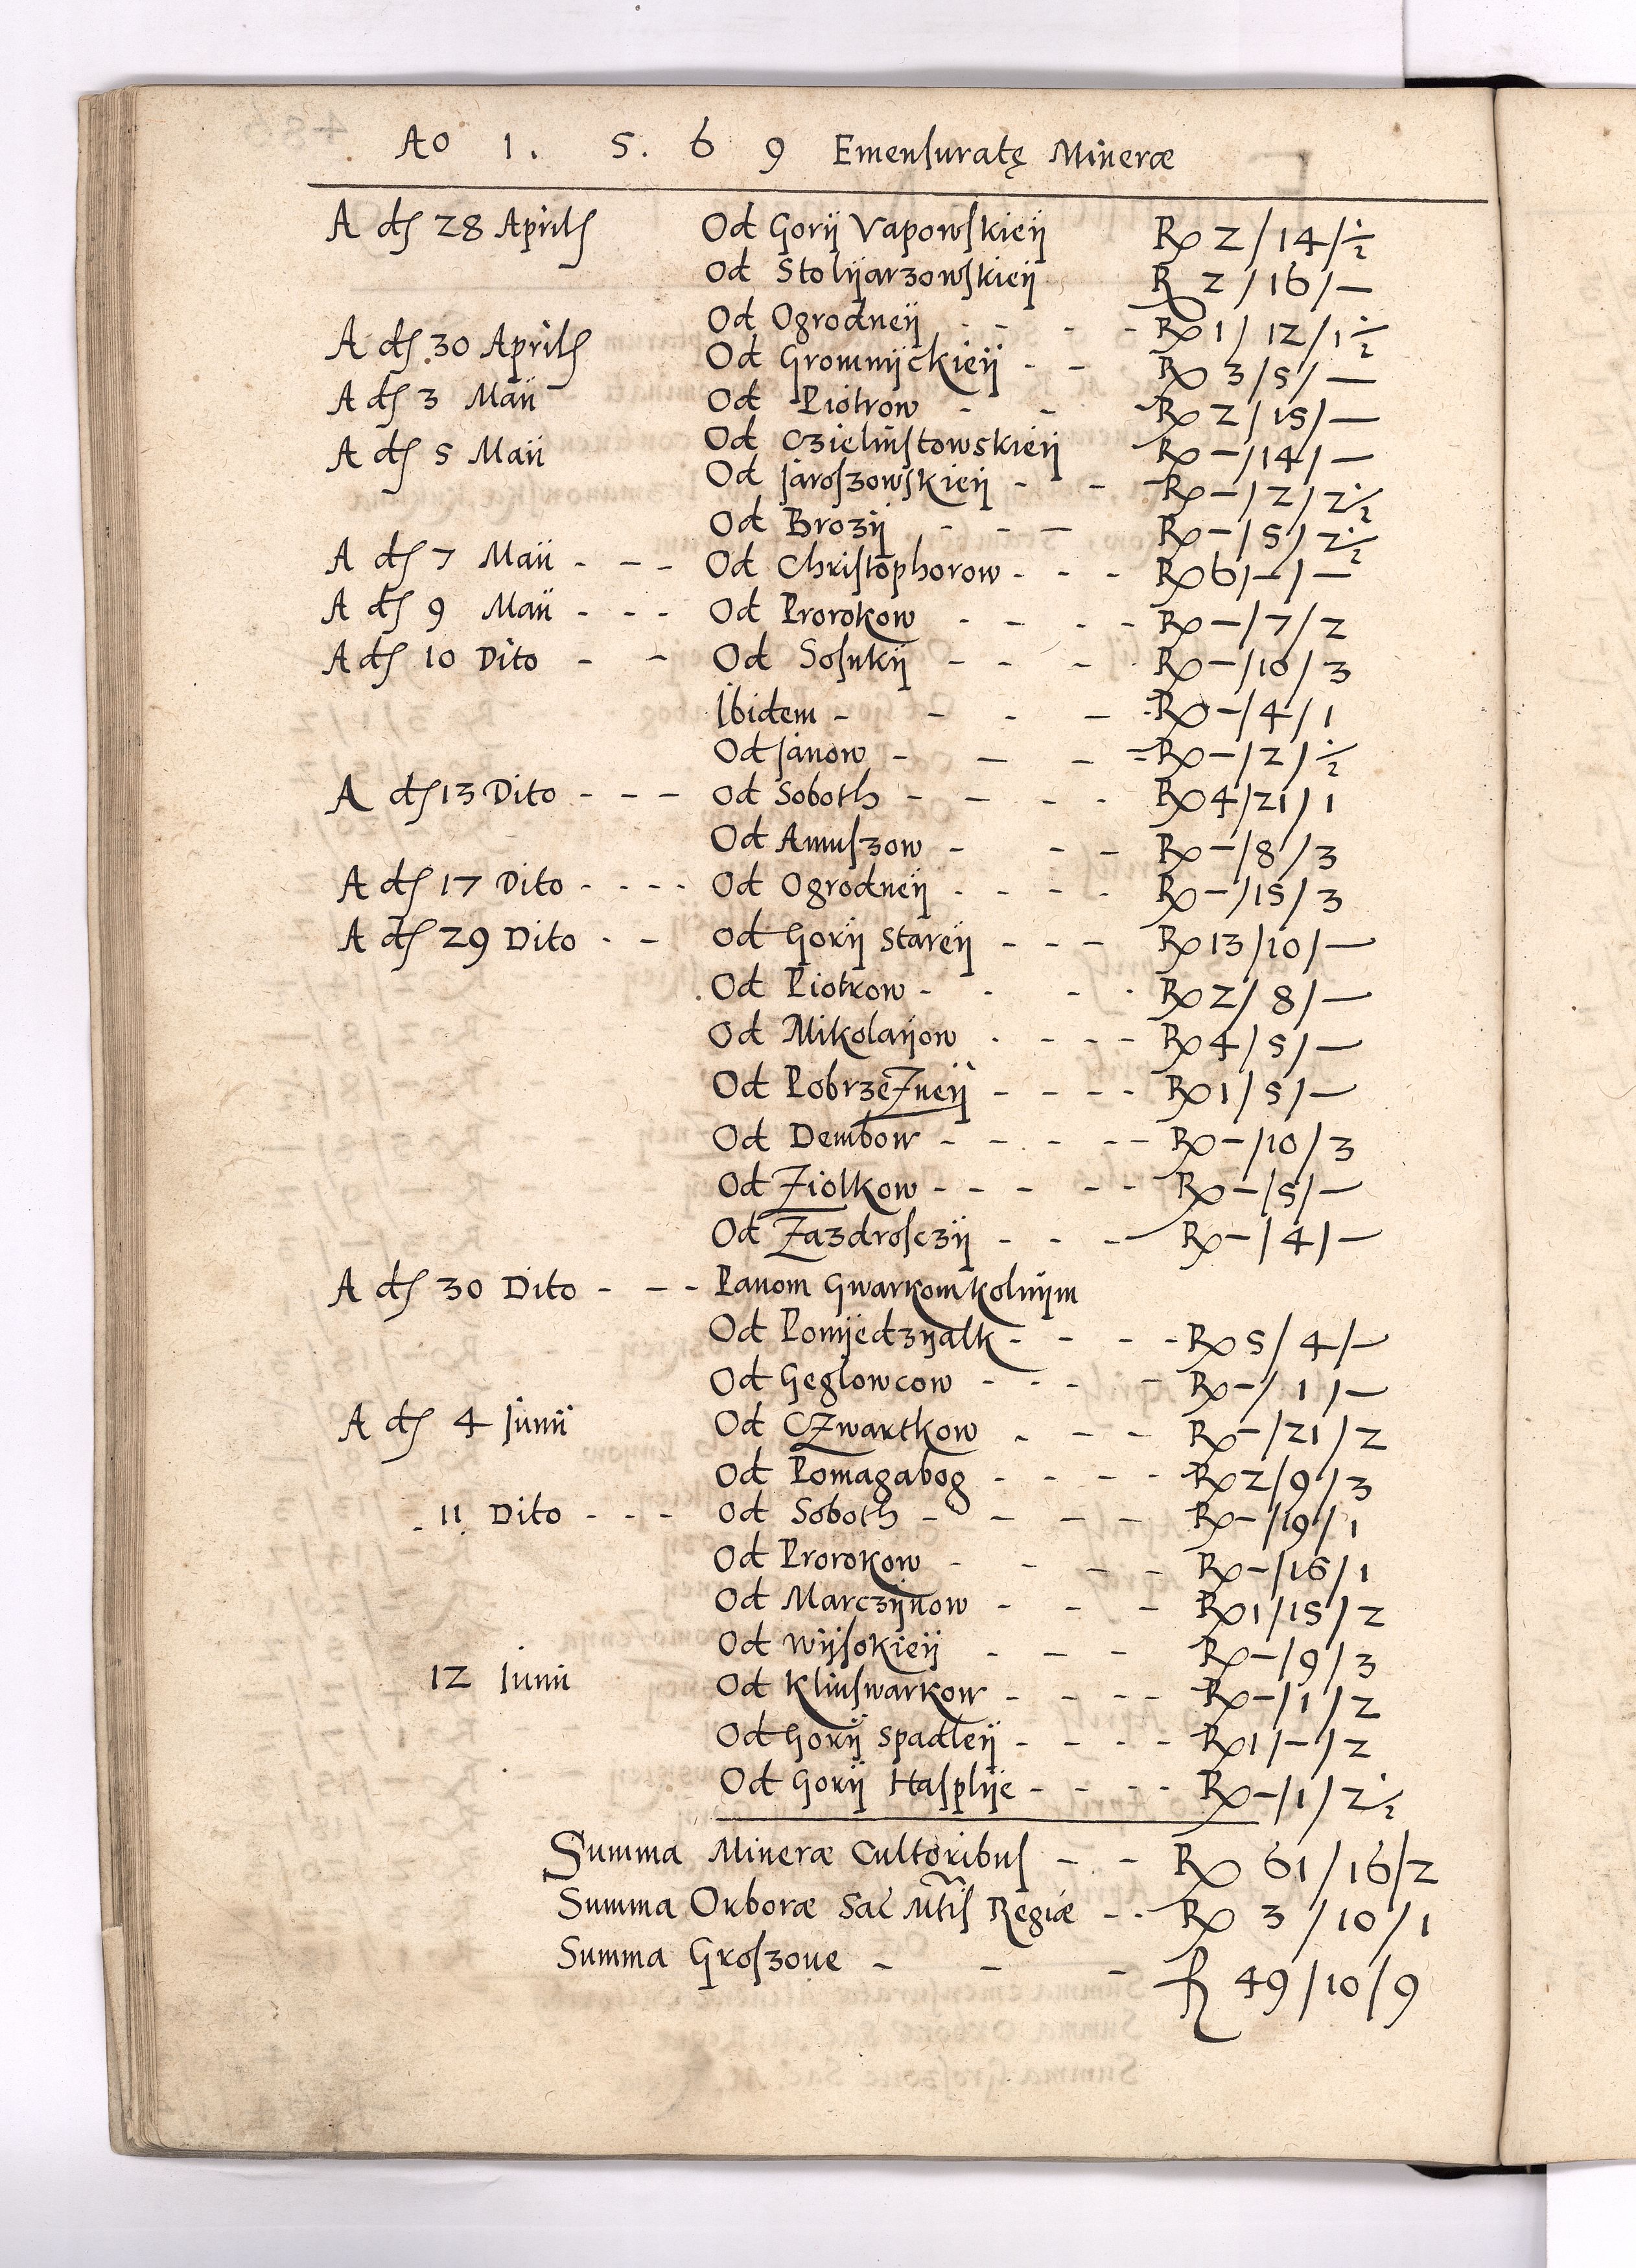 Ao 1. 5. 6 9 Emensuratę Mineræ
A ds 28 Aprils Od Gorij Vapowskieij Rp 2/14/½
Od Stolijarzowskieij R 2/16/—
Od Ogrodneij - - - Rp 1/12/1½
A ds 30 Aprils Od Gromnijckieij - - Rp 3/5/—
A ds 3 Maii Od Piotrow - - - Rp 2/15/—
A ds 5 Maii Od Czielinstowskieij Rp -/14/—
Od Jaroszowskieij - - - Rp -/2/2½
Od Brozij - - - Rp -/5/2½
A ds 7 Maii - - - Od Christophorow - - - Rp 6/-/—
A ds 9 Maii - - - Od Prorokow - - - - Rp -/7/2
A ds 10 Dito - - Od Sosnkij - - - - Rp -/10/3
Ibidem - - - - Rp -/4/1
Od Janow - - - = Rp -/2/½
A ds 13 Dito - - - Od Soboth - - - - Rp 4/21/1
Od Amuszow - - - Rp -/8/3
A ds 17 Dito - - - - Od Ogrodneij - - - - Rp -/15/3
A ds 29 Dito - - Od Gorij Stareij - - - Rp 13/10/—
Od Piotrow - - - - Rp 2/8/—
Od Mikolaijow - - - - Rp 4/5/—
Od Pobrzeżneij - - - - Rp 1/5/—
Od Dembow - - - - - Rp -/10/3
Od Ziolkow - - - - - Rp -/5/—
Od Zazdrosczij - - - - Rp -/4/—
A ds 30 Dito - - - Panom Gwarkom kolnijm
Od Ponijedzyalk - - - - Rp 5/4/—
Od Geglowcow - - - - Rp -/1/—
A ds 4 Junii Od CZwartkow - - - Rp -/21/2
Od Pomagabog - - - - Rp 2/9/3
11 Dito - - - Od Soboth - - - - Rp -/19/1
Od Prorokow - - - - Rp -/16/1
Od Marczijnow - - - Rp 1/15/2
Od Wijsokieij - - - Rp -/9/3
12 Junii Od Klinswarkow - - - - Rp -/1/2
Od Gorij Spadleij - - - - Rp 1/-/2
Od Gorij Hasplije - - - - Rp -/1/2½
Summa Mineræ Cultoribus - - Rp 61/16/2
Summa Orboræ Sac Mtis Regiæ - - Rp 3/10/1
Summa Groszoue - - - R 49/10/9